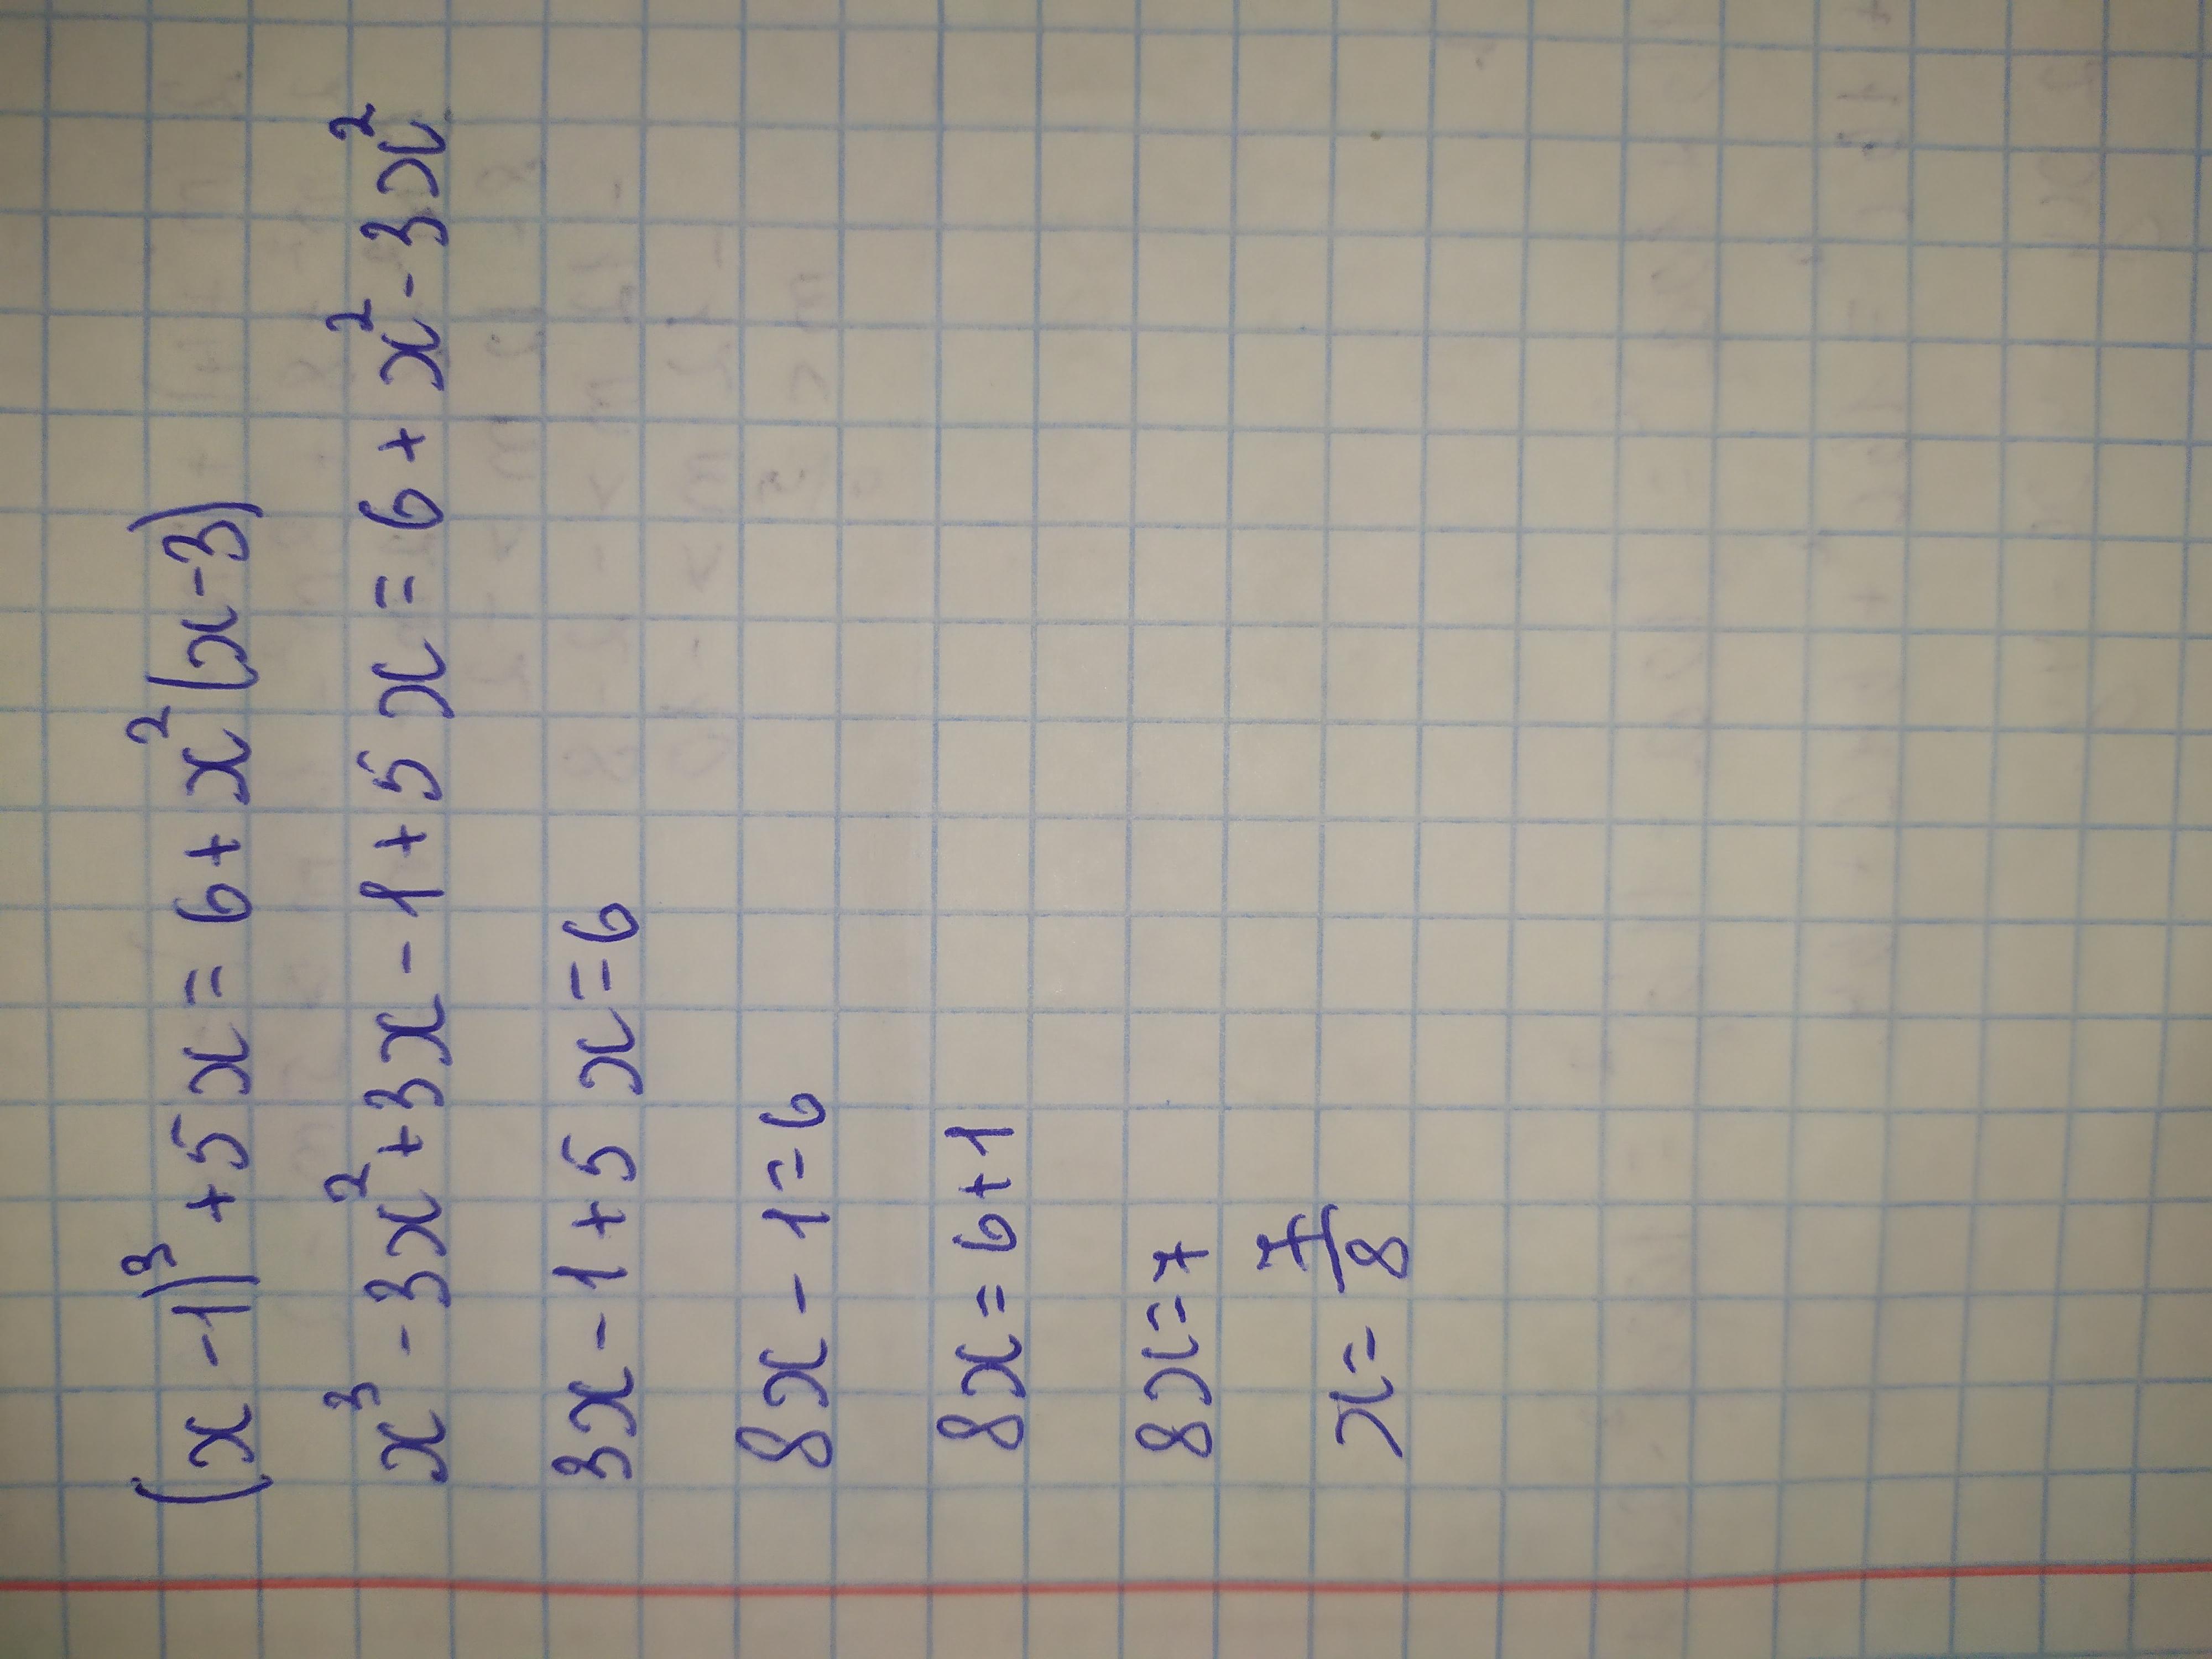 (x-1)³+5x=6+x²(x-3)
x³-3x²+3x-1+5x=6+x²-3x²
3x-1+5x=6
8x-1=6
8x=6+1
8x=7
x=7/8